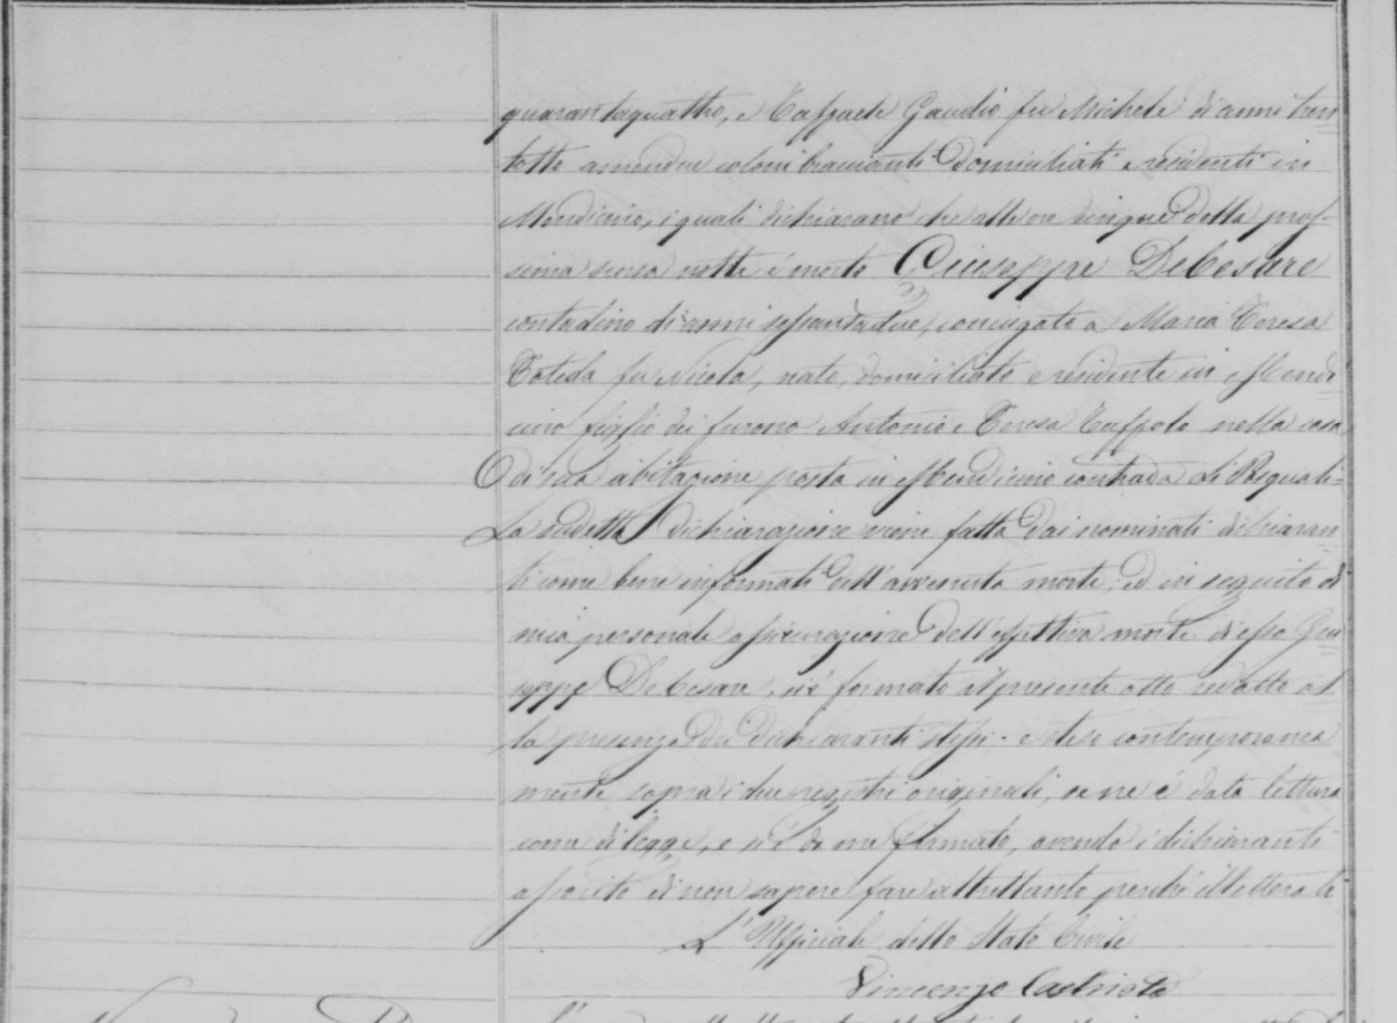 quarantaquattro, e Raffaele Gaudio fu Michele di anni tren
totto amendue coloni braccianti domiciliati e residenti in
Mendicino, i quali dichiarano che alle ore cinque della pros-
sima scorsa notte è morto Giuseppe DeCesare
contadino di anni sessantadue, coniugato a Maria Teresa
fu Nicola, nato, domiciliato e residente in Mendi
cino figlio dei furono Antonio e Teresa nella casa
di sua abitazione posta in Mendicino contrada Li Pasquali=
La sudetta dichiarazione viene fatta dai nominati dichiaran
ti come bene informati dell'avvenuta morte; ed in seguito di
mia personale assicurazione dell'effettiva morte di esso Giu
seppe DeCesare, si è formato il presente atto redatto al
la presenza dei dichiaranti stessi. steso contemporanea
mente sopra i due registri originali, se ne è data lettura
come di legge, e si è da me firmato, avendo i dichiaranti
asserito di non sapere fare altrettanto perché illetterati
L'Uffiziale dello Stato Civile
Vincenzo Castriota